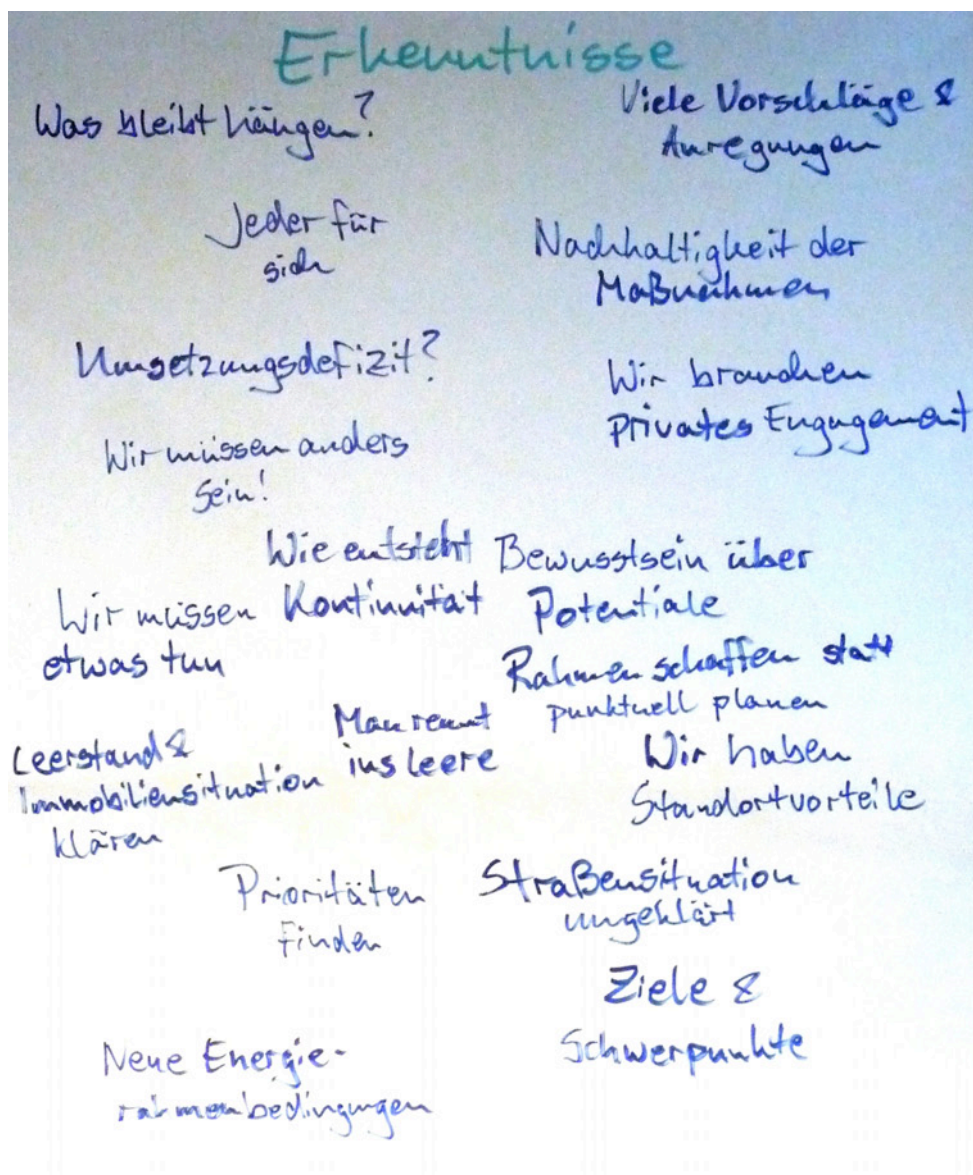 Erkenntnisse
Was bleibt hängen?
Viele Vorschläge &
Anregungen
Jeder für
sich
Nachhaltigkeit der
Maßnahmen
Umsetzungsdefizit?
Wir brauchen
privates Engagement
Wir müssen anders
sein!
Wie entsteht
Kontinuität
Bewusstsein über
Potentiale
Wir müssen
etwas tun
Rahmen schaffen statt
punktuell planen
Man rennt
ins leere
Leerstand &
Immobiliensituation
klären
Wir haben
Standortvorteile
Prioritäten
finden
Straßensituation
ungeklärt
Ziele &
Schwerpunkte
Neue Energie-
rahmenbedingungen